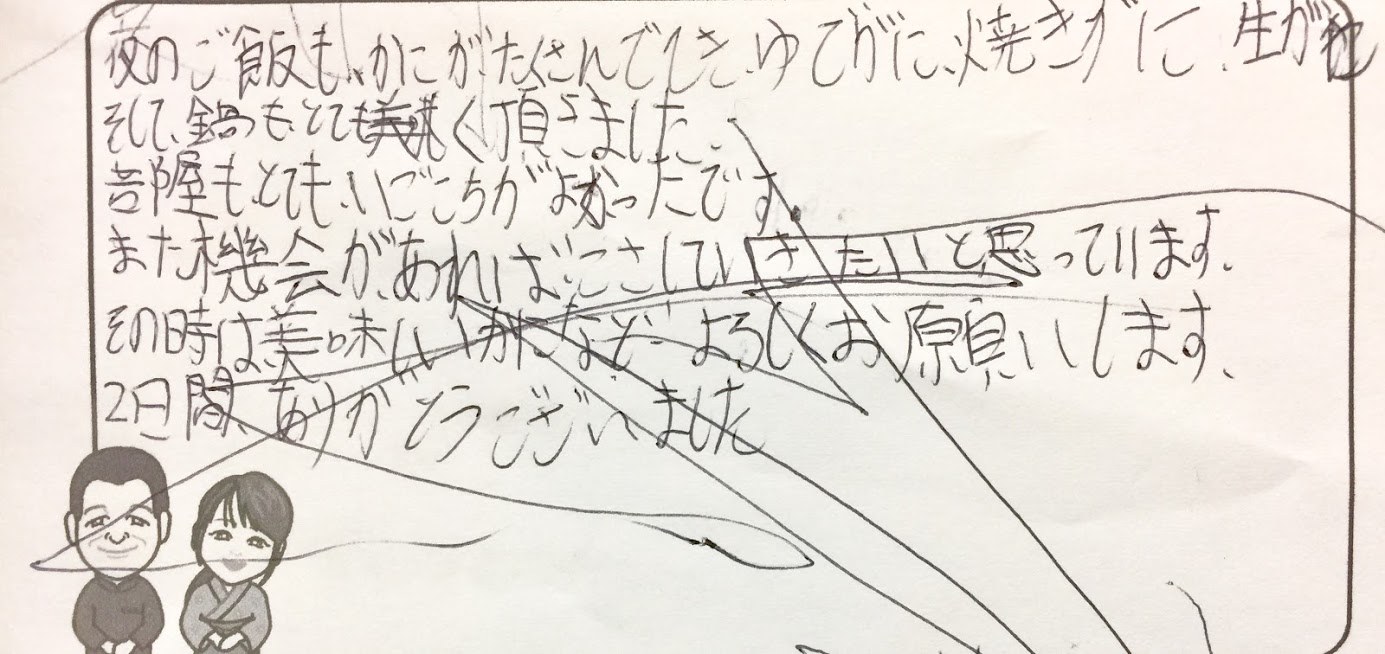 夜のご飯も、かにがたくさんでてき、ゆでがに、焼きがに、生がに
そして、鍋も、とても美味く頂きました。
部屋も、とても、いごこちがよかったです
また機会があれば、ここきていきたいと思っています。
その時は美味しいかになど、よろしくお願いします。
2日間、ありがとうございました